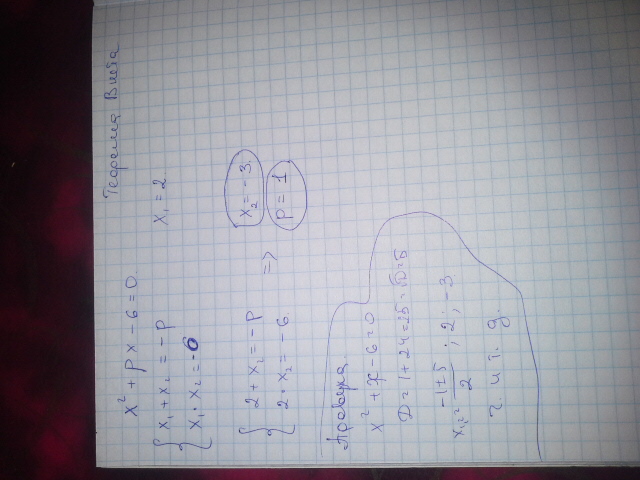 Теорема Виета
x² + px - 6 = 0    x₁ = 2
{ x₁ + x₂ = -p
x₁ · x₂ = -6
{ 2 + x₂ = -p    =>    x₂ = -3
2 · x₂ = -6    p = 1
Проверка.
x² + x - 6 = 0
D = 1 + 24 = 25 √D = 5
x₁,₂ = (-1 ± 5) / 2 ; 2 ; -3.
ч. и т. д.